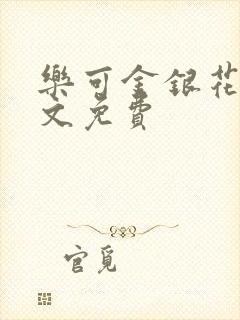 樂可金銀花
文免費
官覓